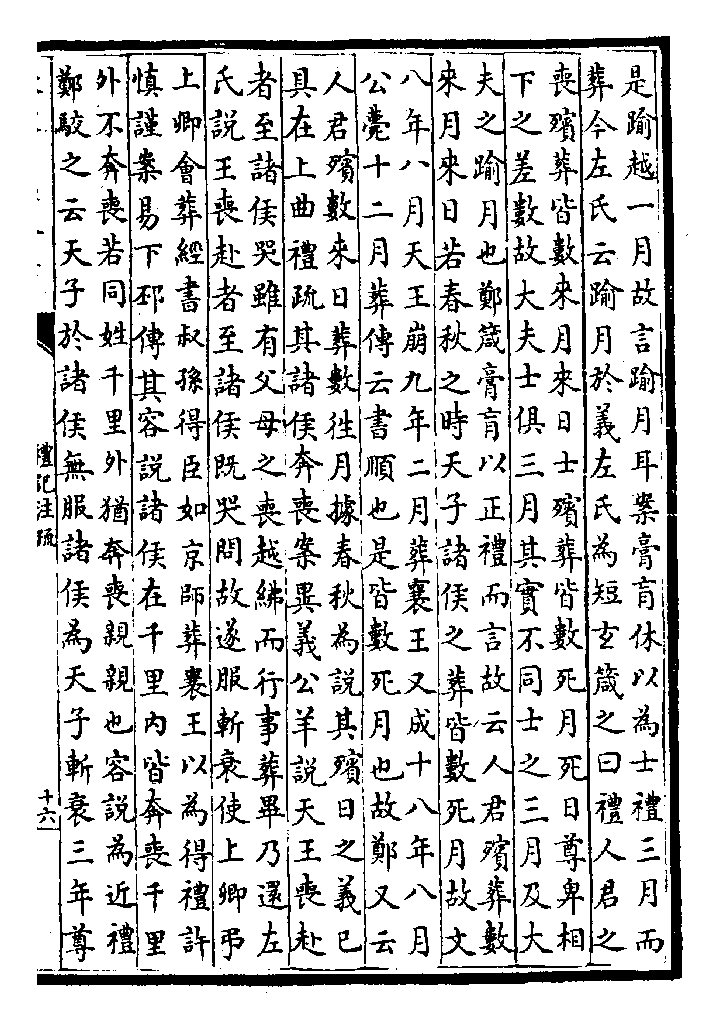 是踰越一月故言踰月耳案膏肓休以為士禮三月而
葬今左氏云踰月於義左氏為短玄箴之曰禮人君之
喪殯葬皆數來月來日士殯葬皆數死月死日尊卑相
下之差數故大夫士俱三月其實不同士之三月及大
夫之踰月也鄭箴膏肓以正禮而言故云人君殯葬數
來月來日若春秋之時天子諸侯之葬皆數死月故文
八年八月天王崩九年二月葬襄王又成十八年八月
公薨十二月葬傳云書順也是皆數死月也故鄭又云
人君殯數來日葬數徃月據春秋為說其殯日之義已
具在上曲禮疏其諸侯奔喪案異義公羊說天王喪赴
者至諸侯哭雖有父母之喪越紼而行事葬畢乃還左
氏說王喪赴者至諸侯既哭問故遂服斬衰使上卿弔
上卿會葬經書叔孫得臣如京師葬襄王以為得禮許
慎謹案易下邳傳其容說諸侯在千里內皆奔喪千里
外不奔喪若同姓千里外猶奔喪親親也容說為近禮
鄭駮之云天子於諸侯無服諸侯為天子斬衰三年尊
禮記注疏
十六